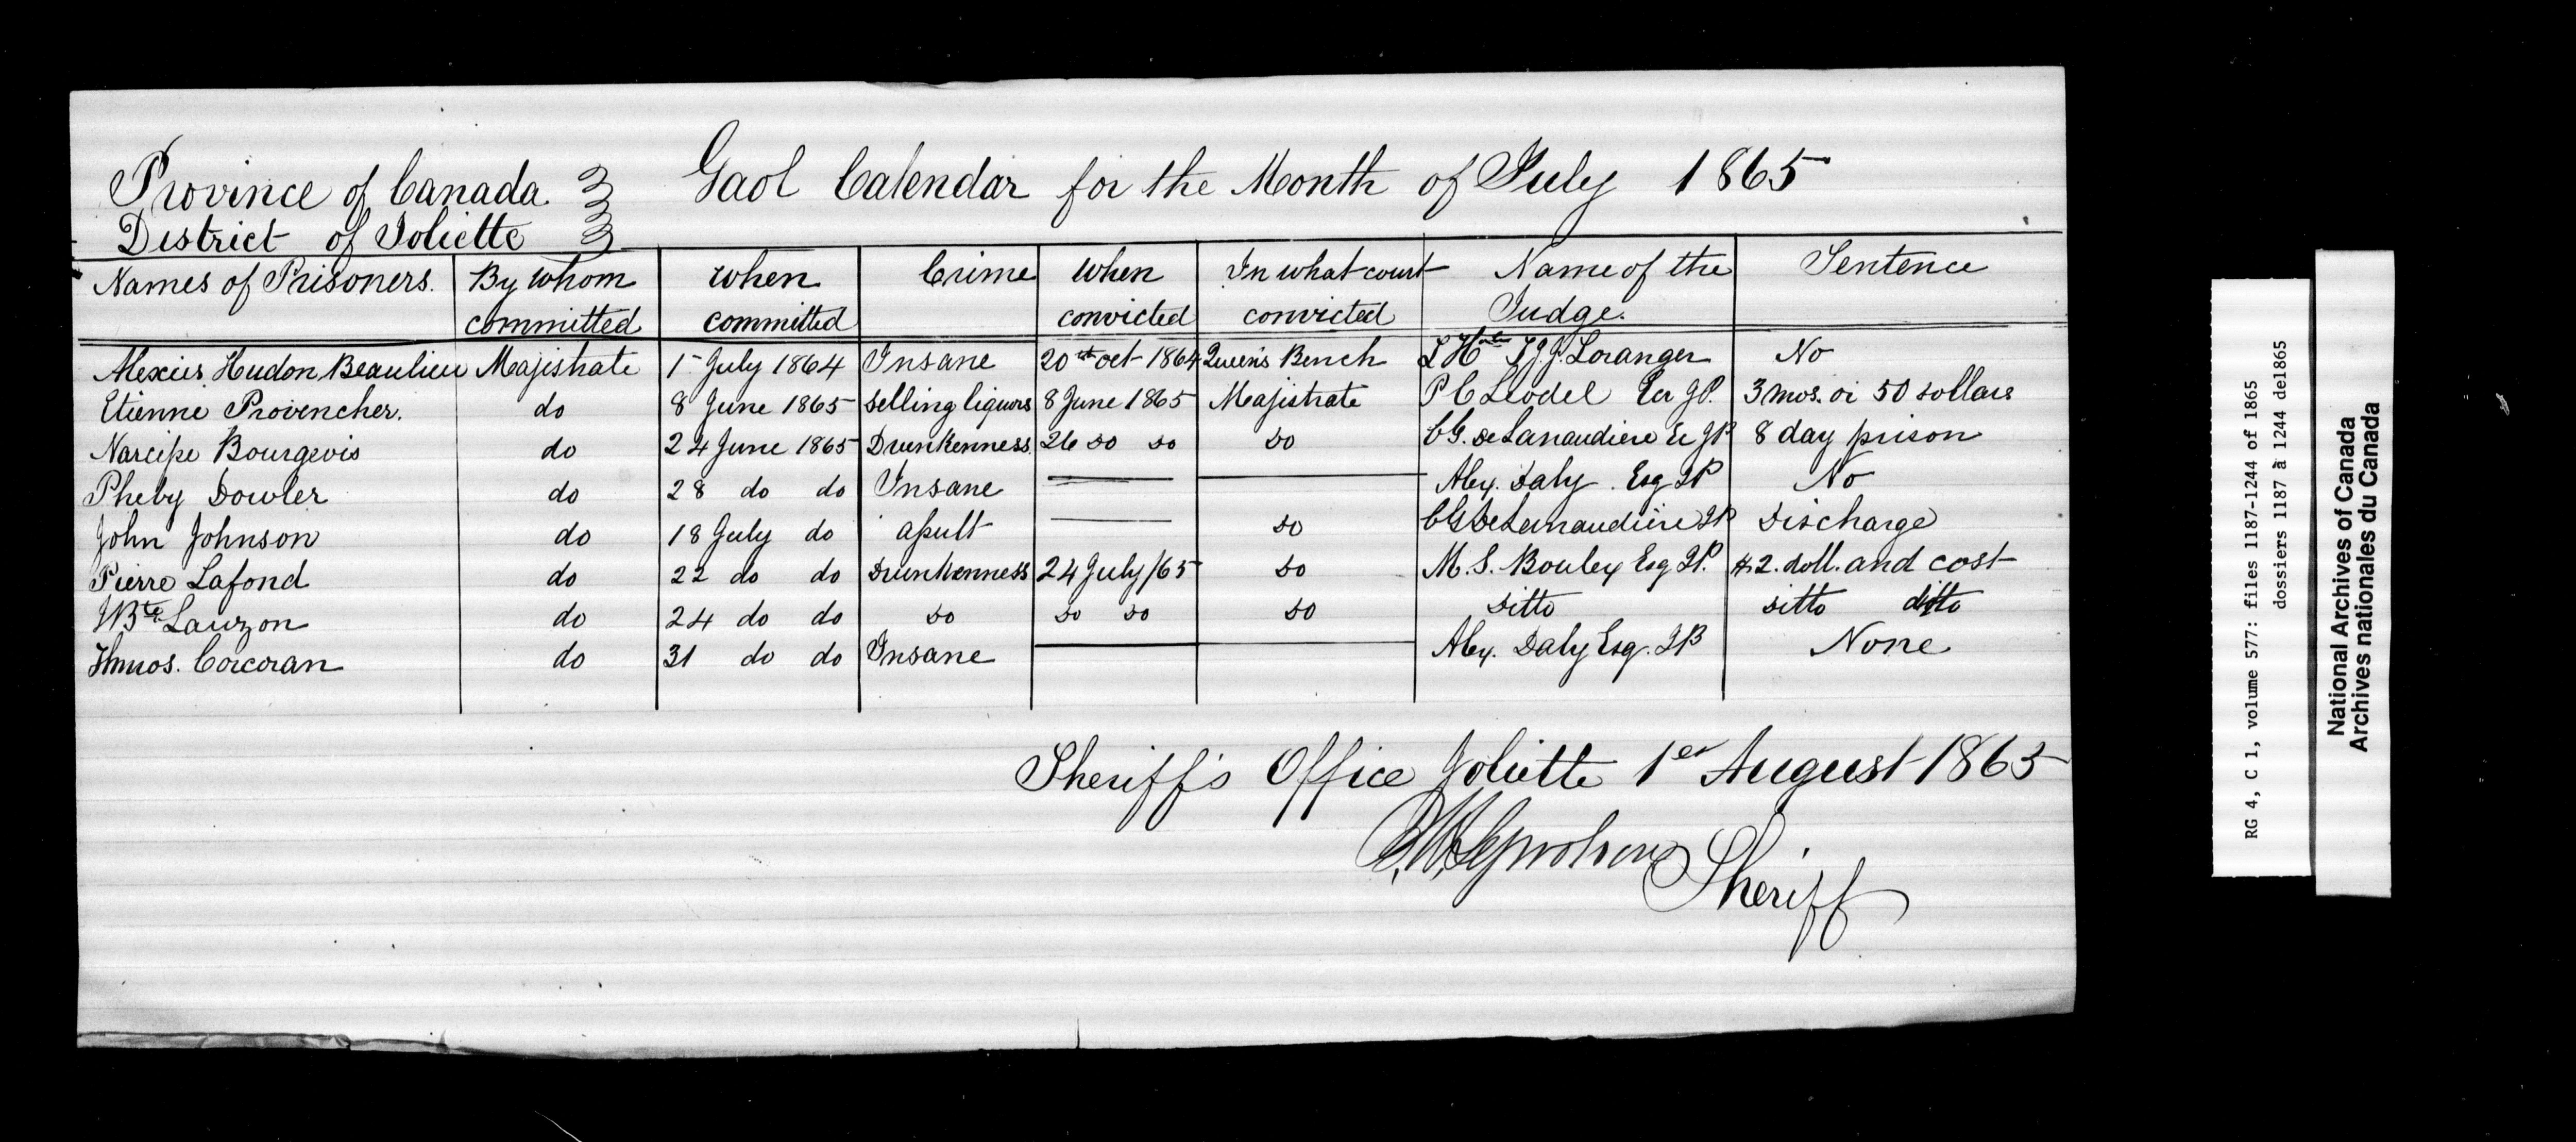 Province of Canada
District of Joliette
Gaol Calendar for the Month of July 1865
Names of Prisoners. | By whom committed | When committed | Crime | When convicted | In what court convicted | Name of the Judge. | Sentence
Alexius Hudon Beaulieu | Majistrate | 1 July 1864 | Insane | 20 oct 1864 | Queen's Bench | L Hble T.J.J. Loranger | No
Etienne Provencher. | do | 8 June 1865 | Selling liquors | 8 June 1865 | Majistrate | P C Leodel Er JP. | 3 mos. or 50 dollars
Narcisse Bourgeois | do | 24 June 1865 | Drunkenness | 26 do do | do | C.G. de Lanaudiere Er JP | 8 day prison
Pheby Dowler | do | 28 do do | Insane | — | — | Alex. Daly. Esq JP | No
John Johnson | do | 18 July do | assult | — | do | C G De Lanaudiere JP | Discharge
Pierre Lafond | do | 22 do do | Drunkenness | 24 July /65 | do | M. S. Bouley Esq JP. | $2. doll. and cost
JBte Lauzon | do | 24 do do | do | do do | do | Ditto | ditto ditto
Corcoran | do | 31 do do | Insane | — | — | Alex. Daly Esq. JP | None
Sheriff's Office Joliette 1er August 1865
Sheriff
RG 4, C 1, volume 577: files 1187-1244 of 1865
dossiers 1187 à 1244 de1865
National Archives of Canada
Archives nationales du Canada